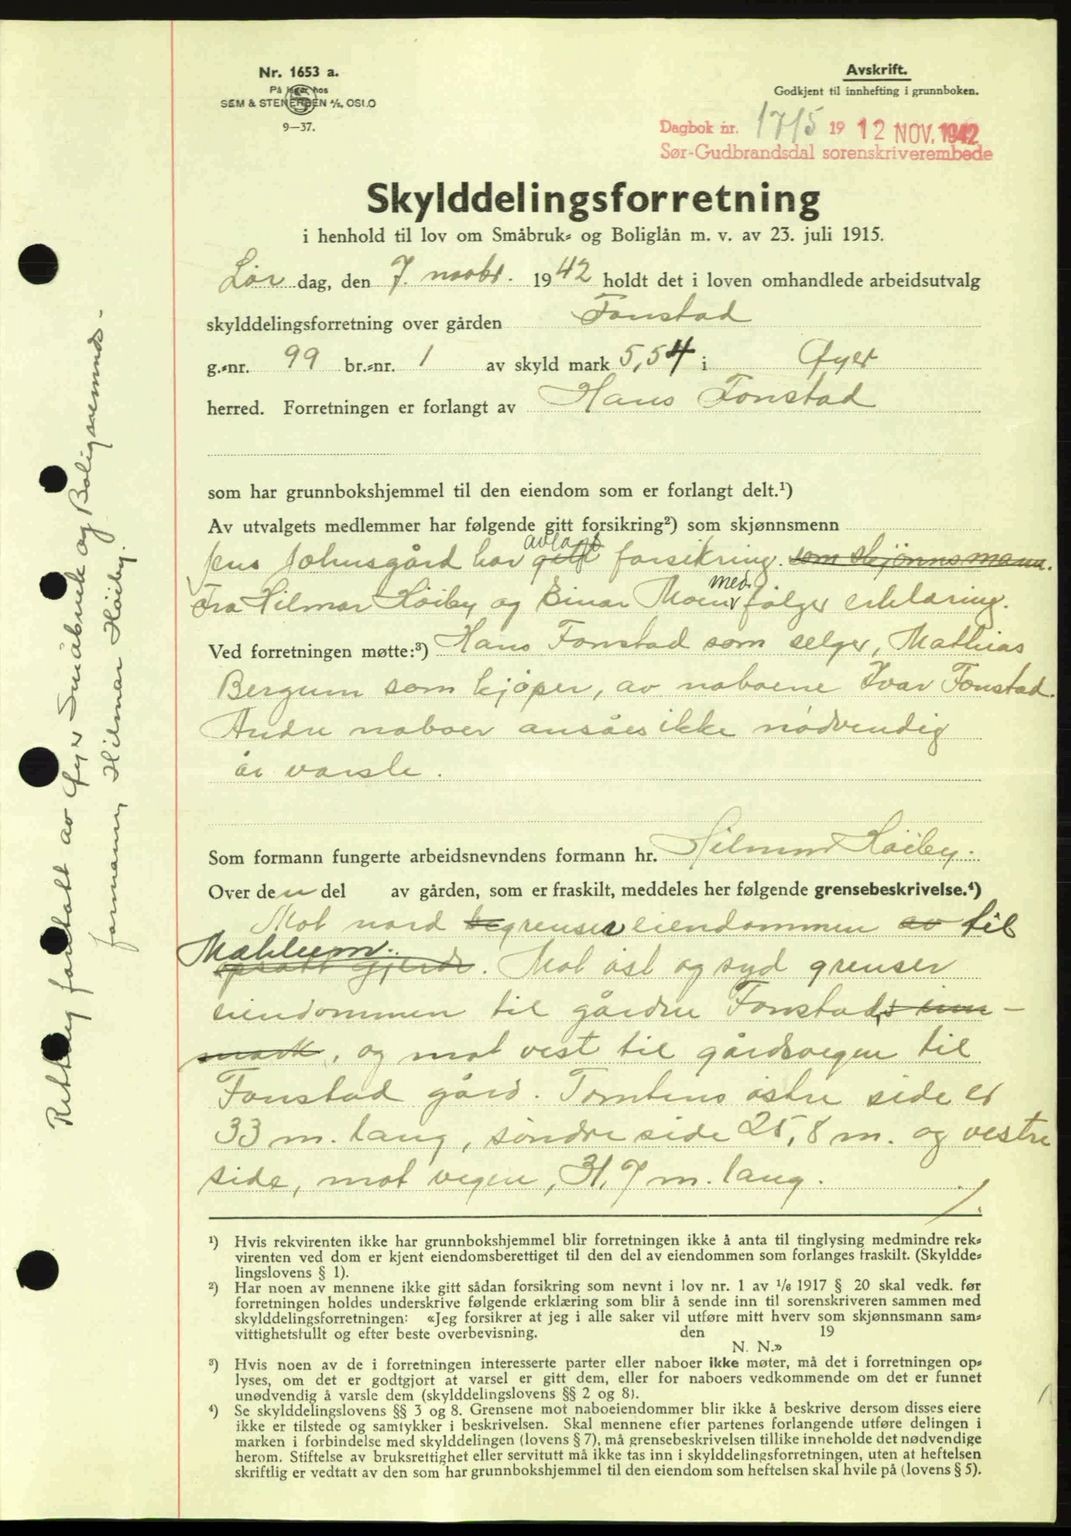 Nr. 1653 a.
På lager hos
SEM & STENERSEN A/S, OSLO
9—37.
Avskrift.
Godkjent til innhefting i grunnboken.
Dagbok nr. 1715 19 12 NOV. 1942
Sør-Gudbrandsdal sorenskriverembede
Skylddelingsforretning
i henhold til lov om Småbruk- og Boliglån m. v. av 23. juli 1915.
Lør dag, den 7. novbr. 1942 holdt det i loven omhandlede arbeidsutvalg
skylddelingsforretning over gården Fonstad
g.-nr. 99 br.-nr. 1 av skyld mark 5,54 i Øyer
herred. Forretningen er forlangt av Hans Fonstad
som har grunnbokshjemmel til den eiendom som er forlangt delt.¹)
Av utvalgets medlemmer har følgende gitt forsikring²) som skjønnsmenn
avlagt
Jens Johnsgård har gitt forsikring. som skjønnsmann.
Fra Hilmar Höiby og Einar Moen med følger erklæring.
Ved forretningen møtte:³) Hans Fonstad som selger, Mathias
Bergum som kjöper, av naboene Ivar Fonstad.
Andre naboer ansåes ikke nödvendig
år varsle.
Som formann fungerte arbeidsnevndens formann hr. Hilmar Höiby.
Over den del av gården, som er fraskilt, meddeles her følgende grensebeskrivelse.⁴)
Mot nord begrenser eiendommen av til
Mahlum.
opsatt gjerde. Mot öst og syd grenser
eiendommen til gården Fonstad,s inn-
mark, og mot vest til gårdsvegen til
Fonstad gård. Tomtens östre side er
33 m. lang, söndre side 25,8 m. og vestre
side, mot vegen, 31,7 m. lang.
./.
¹) Hvis rekvirenten ikke har grunnbokshjemmel blir forretningen ikke å anta til tinglysing medmindre rek-
virenten ved dom er kjent eiendomsberettiget til den del av eiendommen som forlanges fraskilt. (Skyldde-
lingslovens § 1).
²) Har noen av mennene ikke gitt sådan forsikring som nevnt i lov nr. 1 av 1/6 1917 § 20 skal vedk. før
forretningen holdes underskrive følgende erklæring som blir å sende inn til sorenskriveren sammen med
skylddelingsforretningen: «Jeg forsikrer at jeg i alle saker vil utføre mitt hverv som skjønnsmann sam-
vittighetsfullt og efter beste overbevisning. den 19
N. N.»
³) Hvis noen av de i forretningen interesserte parter eller naboer ikke møter, må det i forretningen op-
lyses, om det er godtgjort at varsel er gitt dem, eller for naboers vedkommende om det er funnet
unødvendig å varsle dem (skylddelingslovens §§ 2 og 8).
⁴) Se skylddelingslovens §§ 3 og 8. Grensene mot naboeiendommer blir ikke å beskrive dersom disses eiere
ikke er tilstede og samtykker i beskrivelsen. Skal mennene efter partenes forlangende utføre delingen i
marken i forbindelse med skylddelingen (lovens § 7), må grensebeskrivelsen tillike inneholde det nødvendige
herom. Stiftelse av bruksrettighet eller servitutt må ikke tas inn i skylddelingsforretningen, uten at heftelsen
skriftlig er vedtatt av den som har grunnbokshjemmel til den eiendom som heftelsen skal hvile på (lovens § 5).
Rettelig fortalt av Öyer Småbruk og Bolignemnds-
formann Hilmar Höiby.